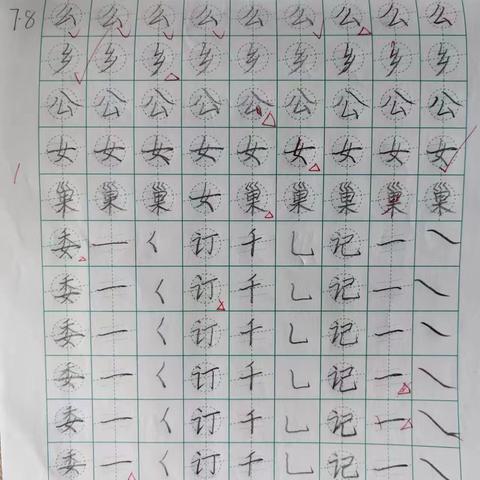 78
么 么 么 么 么 么 么 么 么
乡 乡 乡 乡 乡 乡 乡 乡 乡
公 公 公 公 公 公 公 公 公
女 女 女 女 女 女 女 女 女
巢 巢 巢 女 巢 巢 巢 巢 巢
委 一 ㄑ 订 千 乚 记 一 ㇏
委 一 ㄑ 订 千 乚 记 一 ㇏
委 一 ㄑ 订 千 乚 记 一 ㇏
委 一 ㄑ 订 千 乚 记 一 ㇏
委 一 ㄑ 订 千 乚 记 一 ㇏
委 一 ㄑ 订 千 乚 记 一 ㇏